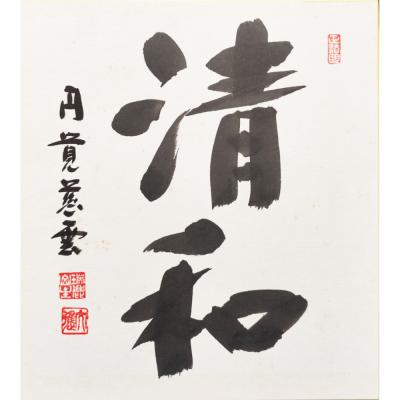 清和
円覚慈雲